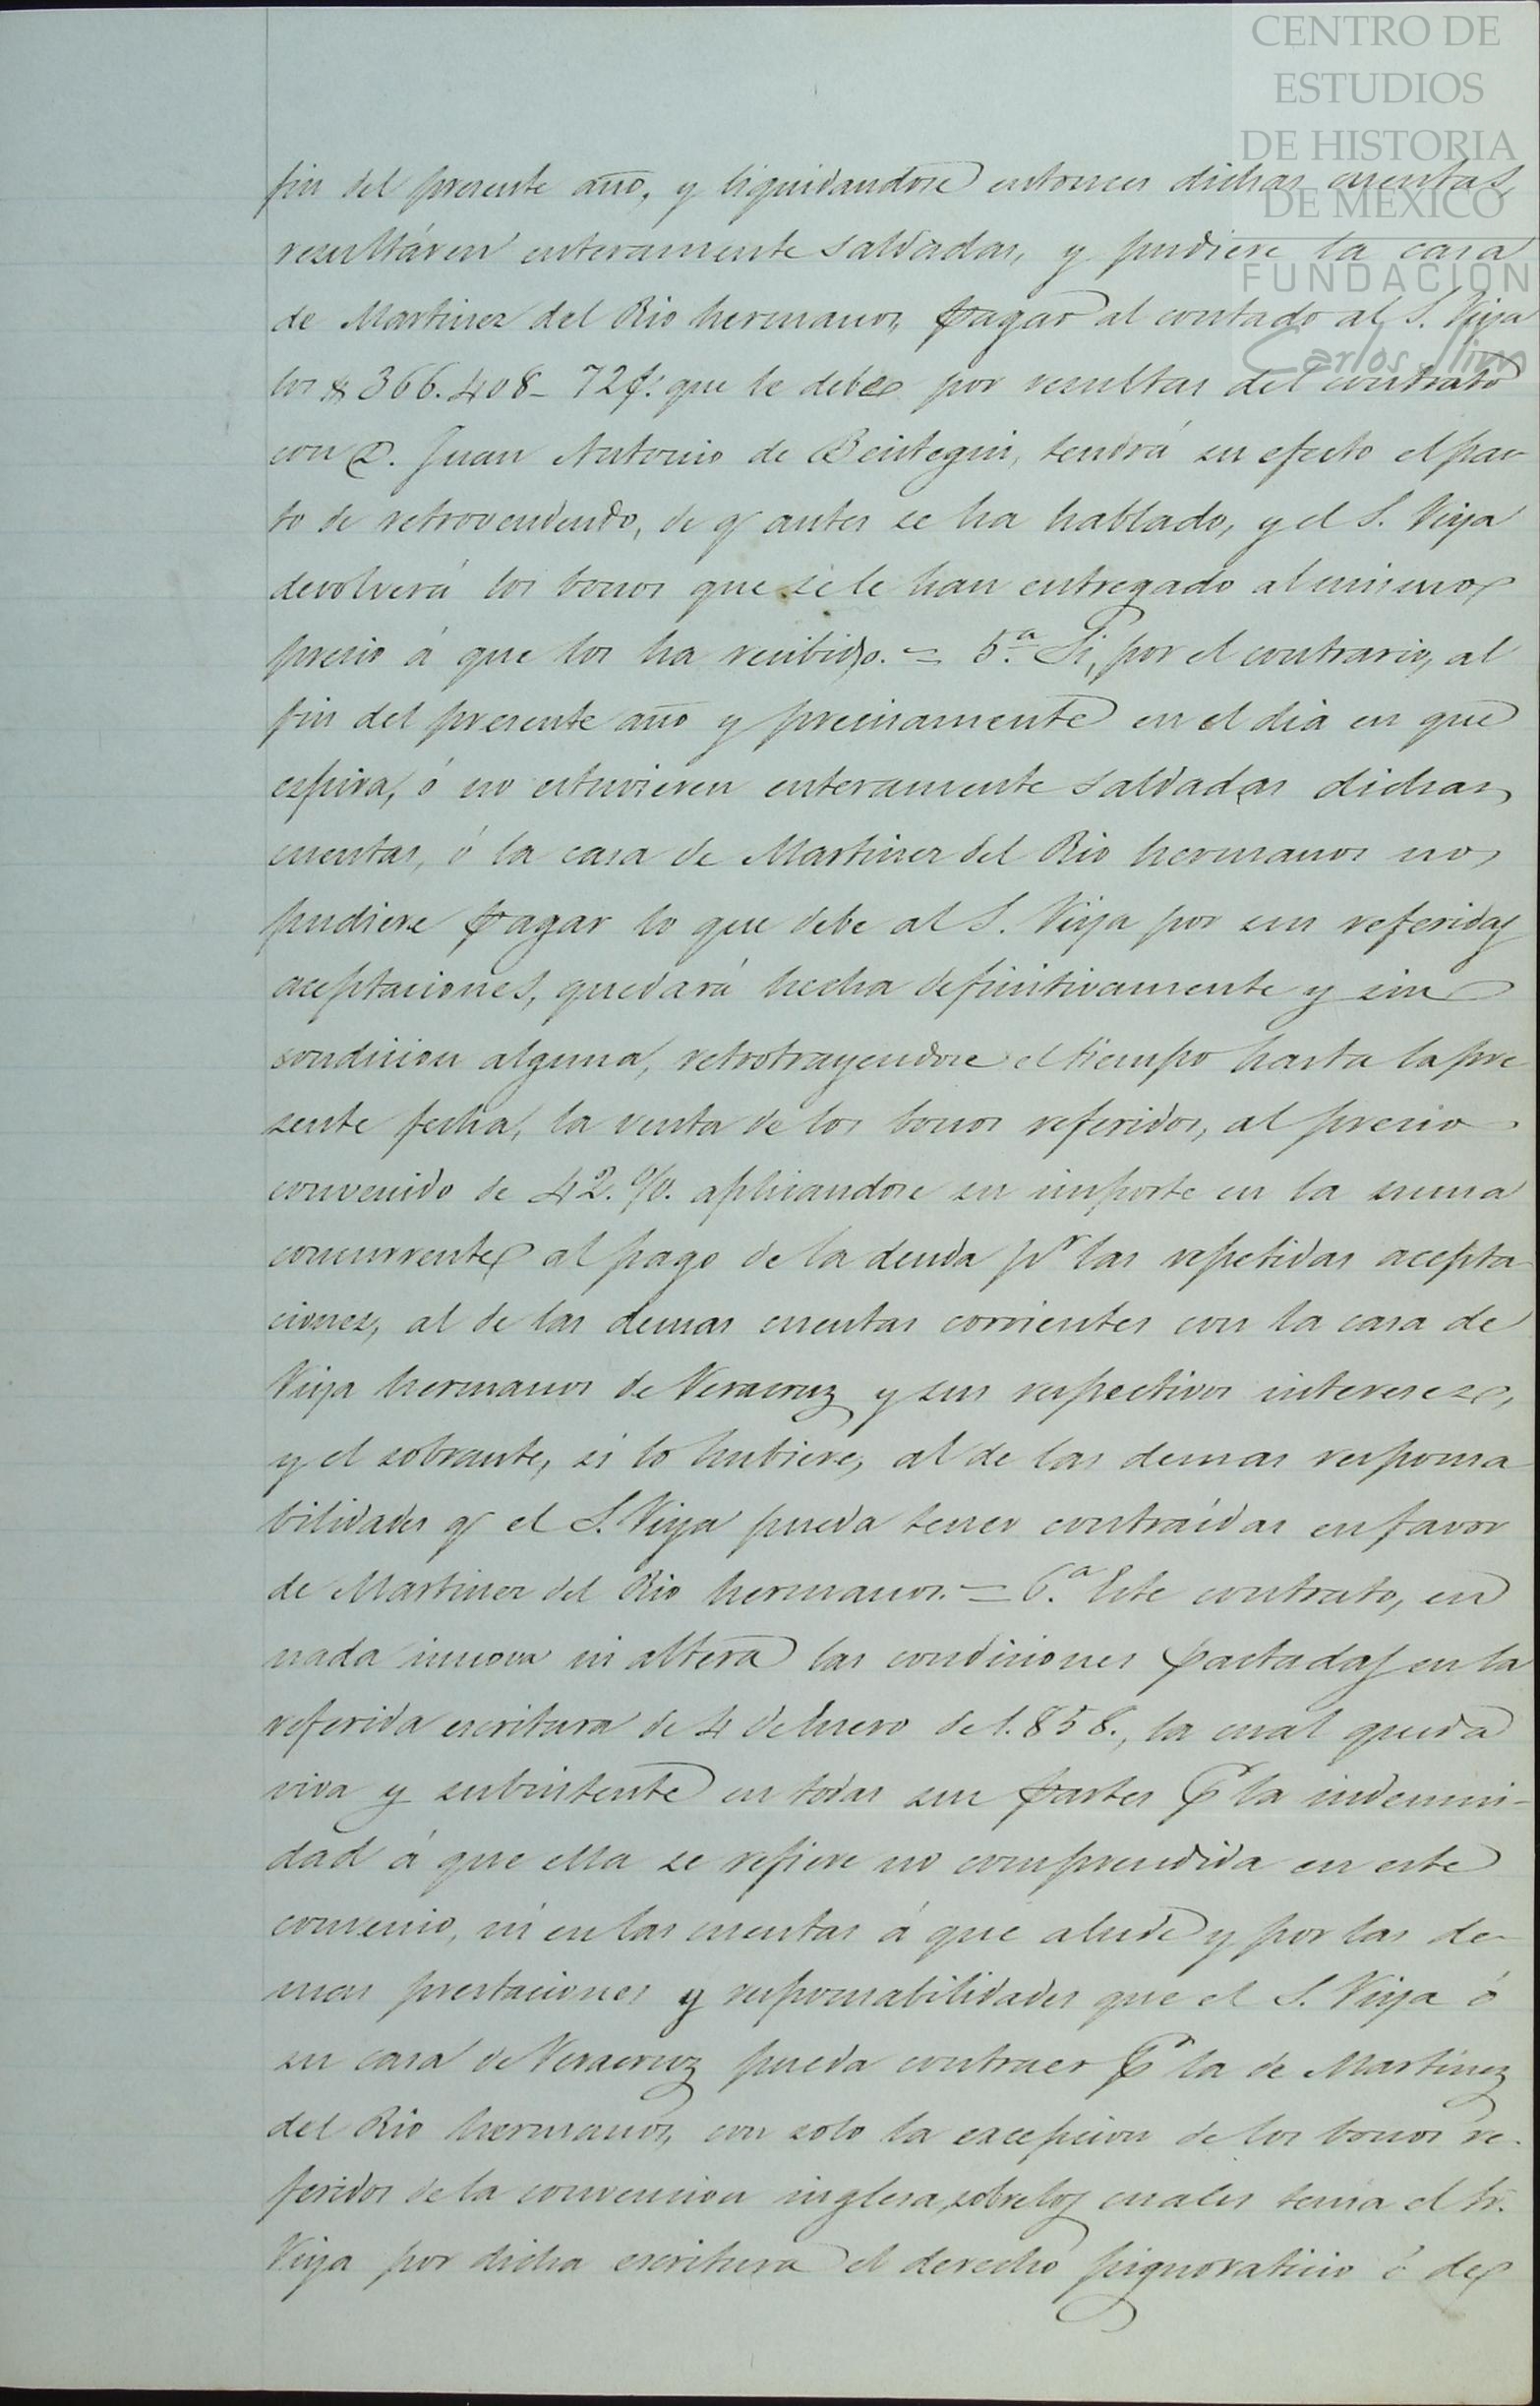 CENTRO DE
ESTUDIOS
DE HISTORIA
DE MÉXICO
FUNDACIÓN
Carlos Slim
fin del presente año, y liquidandose entonces dichas cuentas,
resultáren enteramente saldadas, y pudiere la casa
de Martinez del Rio hermanos, pagar al contado al S. Viya
los $ 366.408-72 ¢. que le debe por resultas del contrato
con D. Juan Antonio de Beistegui, tendrá su efecto el pac-
to de retrovendendo, de q antes se ha hablado, y el S. Viya
devolverá los bonos que se le han entregado al mismo
precio á que los ha recibido. = 5.ª Si, por el contrario, al
fin del presente año y precisamente en el dia en que
espira, ó no estuvieren enteramente saldadas dichas
cuentas, ó la casa de Martinez del Rio hermanos no
pudiere pagar lo que debe al S. Viya por sus referidas
aceptaciones, quedará hecha definitivamente y sin
condicion alguna, retrotrayendose el tiempo hasta la pre
sente fecha, la venta de los bonos referidos, al precio
convenido de 42.%. aplicandose su importe en la suma
concurrente al pago de la deuda pr las repetidas acepta-
ciones, al de las demas cuentas corrientes con la casa de
Viya hermanos de Veracruz y sus respectivos intereses,
y el sobrante, si lo hubiere, al de las demas responsa
bilidades q el S. Viya pueda tener contraídas en favor
de Martinez del Rio hermanos. = 6.ª Este contrato, en
nada innova ni altera las condiciones pactadas en la
referida escritura de 4 de Enero de 1.858., la cual queda
viva y subsistente en todas sus partes pª la indemni-
dad á que ella se refiere no comprendida en este
convenio, ni en las cuentas á que alude y por las de-
mas prestaciones y responsabilidades que el S. Viya ó
su casa de Veracruz pueda contraer pª la de Martinez
del Rio hermanos, con solo la excepcion de los bonos re-
feridos de la convencion inglesa, sobre los cuales tenia el Sr.
Viya por dicha escritura el derecho pignoraticio ó de